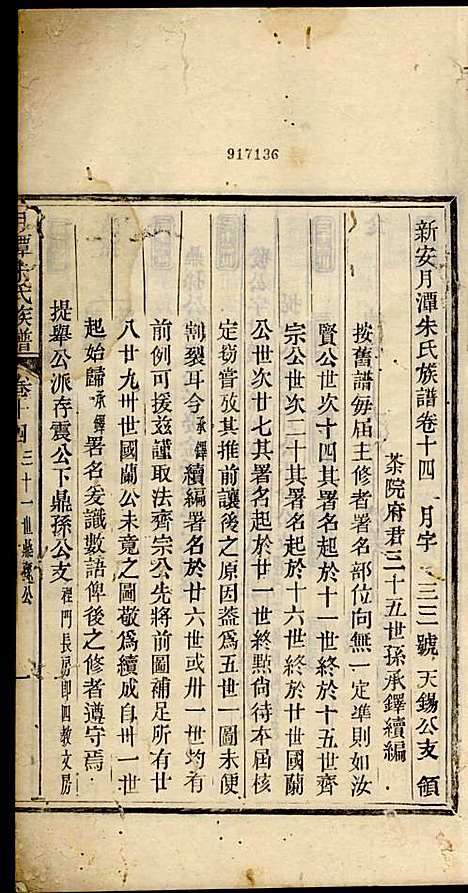 917136
新安月潭朱氏族譜卷十四 月字 三三號 天錫公支 領
茶院府君三十五世孫承鐸續編
按舊譜每屆主修者署名部位向無一定準則如汝
賢公世次十四其署名起於十一世終於十五世齊
宗公世次二十其署名起於十六世終於廿世國蘭
公世次廿七其署名起於廿一世終點尙待本屆核
定竊嘗攷其推前讓後之原因葢爲五世一圖未便
割裂耳今承鐸續編署名於廿六世或卅一世均有
前例可援茲謹取法齊宗公先將前圖補足所有廿
八廿九卅世國蘭公未竟之圖敬爲續成自卅一世
起始歸承鐸署名爰識數語俾後之修者遵守焉
提舉公派存震公下鼎孫公支裡門長房卽四教文房
月潭朱氏族譜 卷十四 三十一世鼎孫公 一